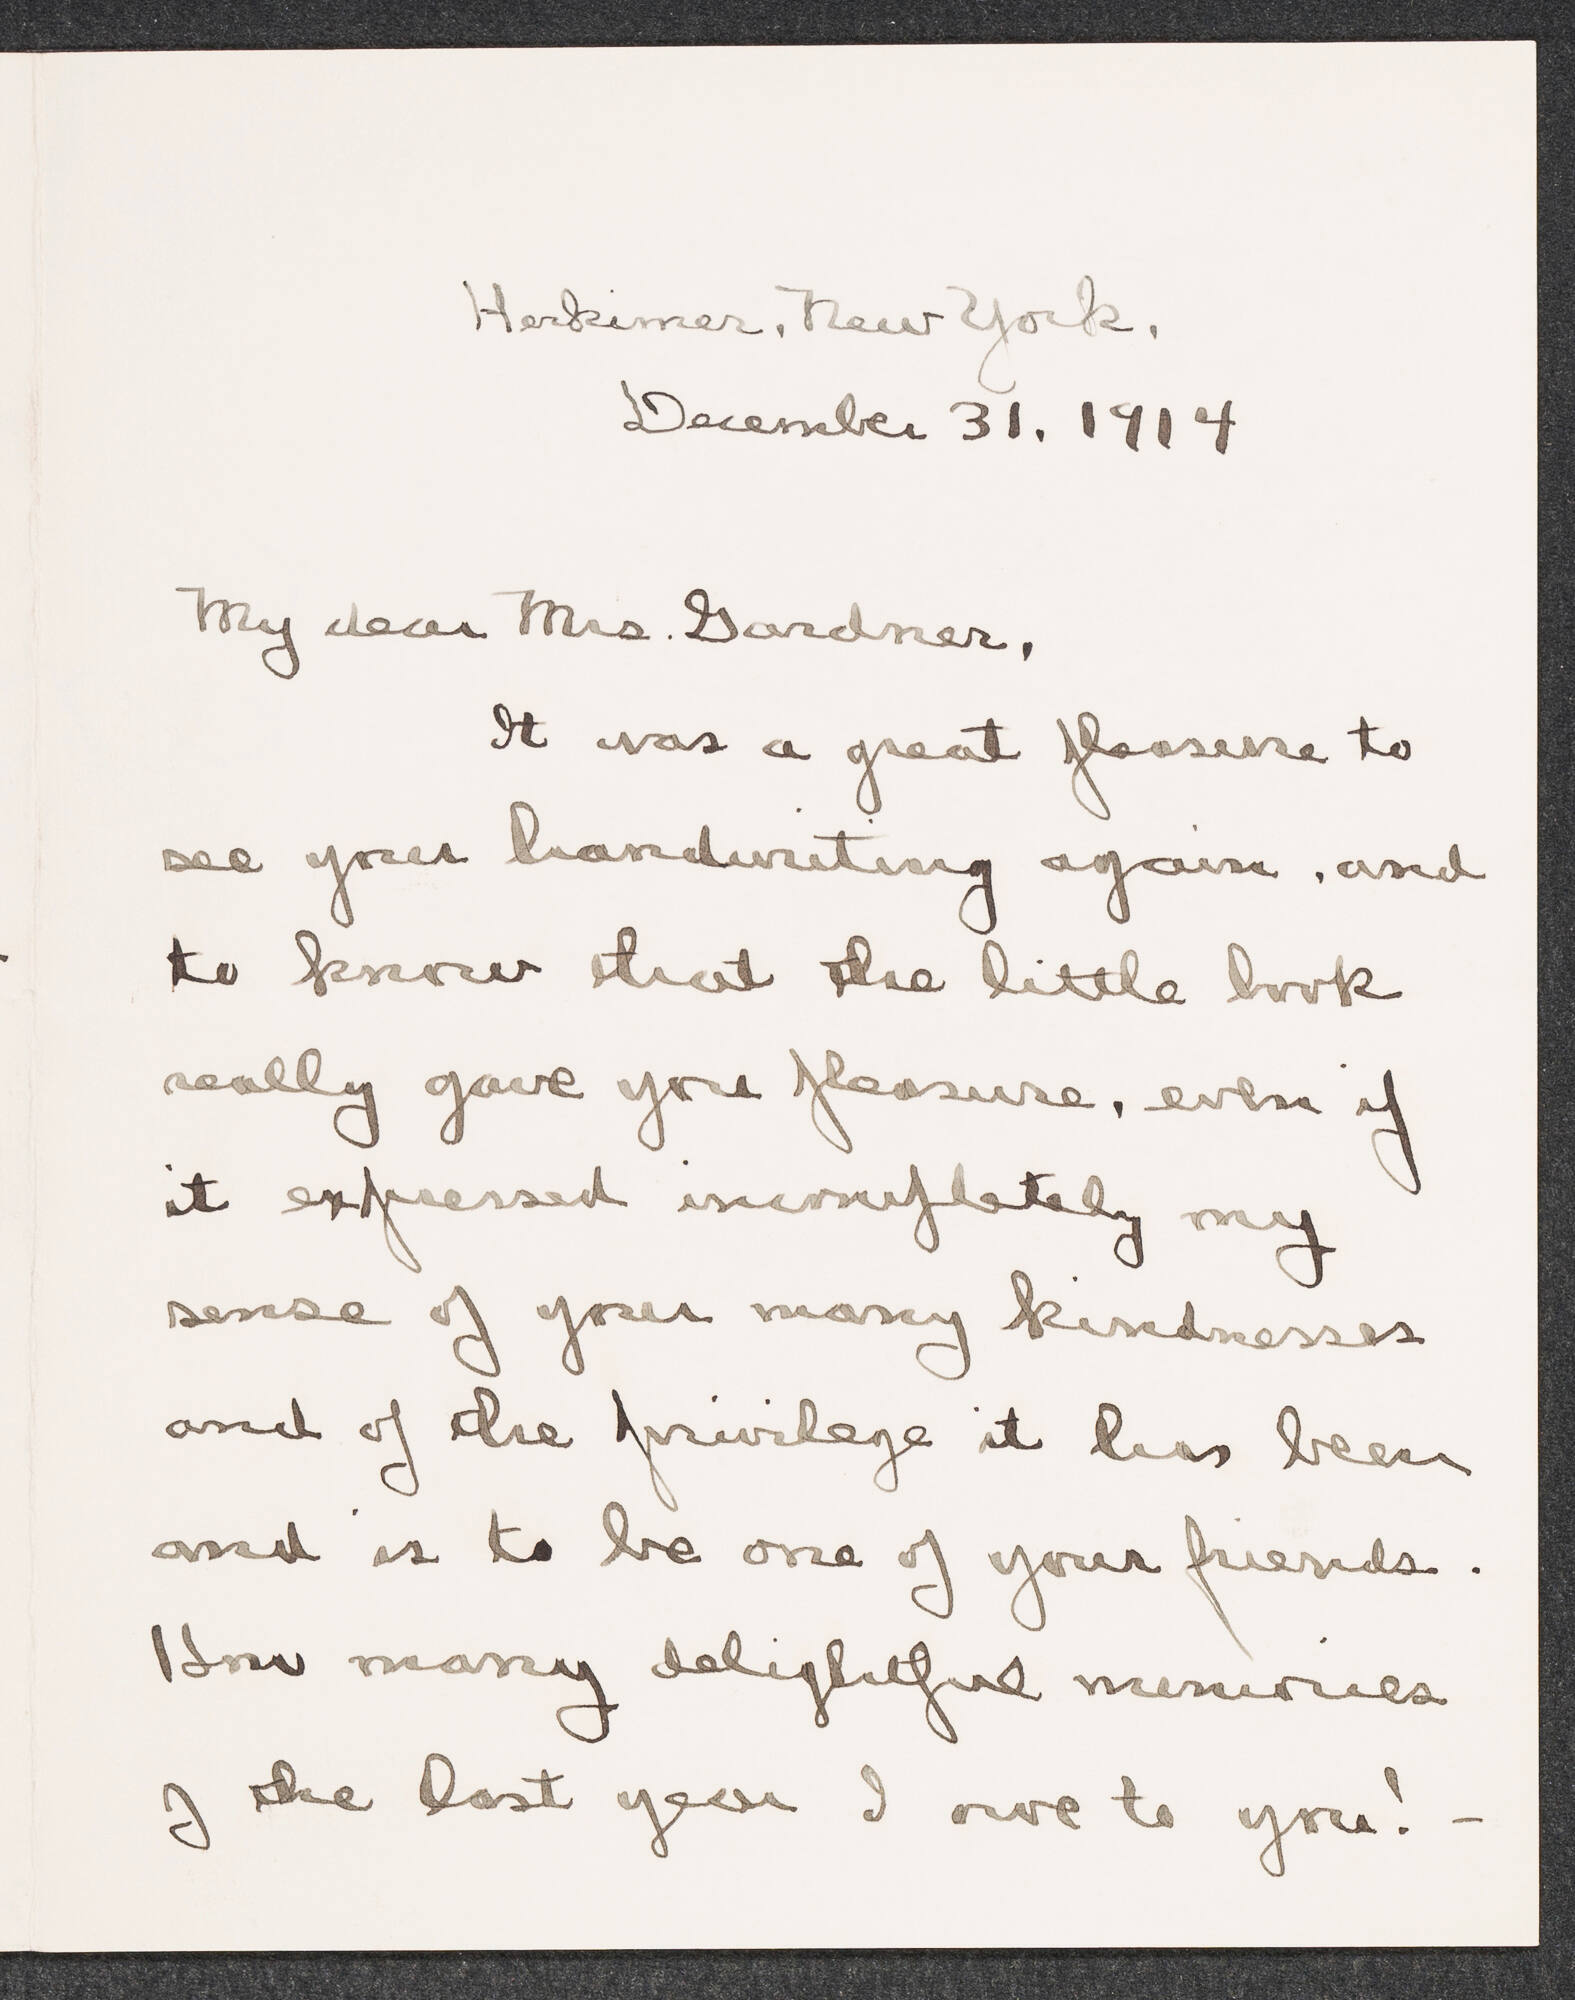 Herkimer, New York,
December 31, 1914
My dear Mrs. Gardner,
It was a great pleasure to
see your handwriting again, and
to know that the little book
really gave you pleasure, even if
it expressed incompletely my
sense of your many kindnesses
and of the privilege it has been
and is to be one of your friends.
How many delightful memories
of the last year I owe to you! -